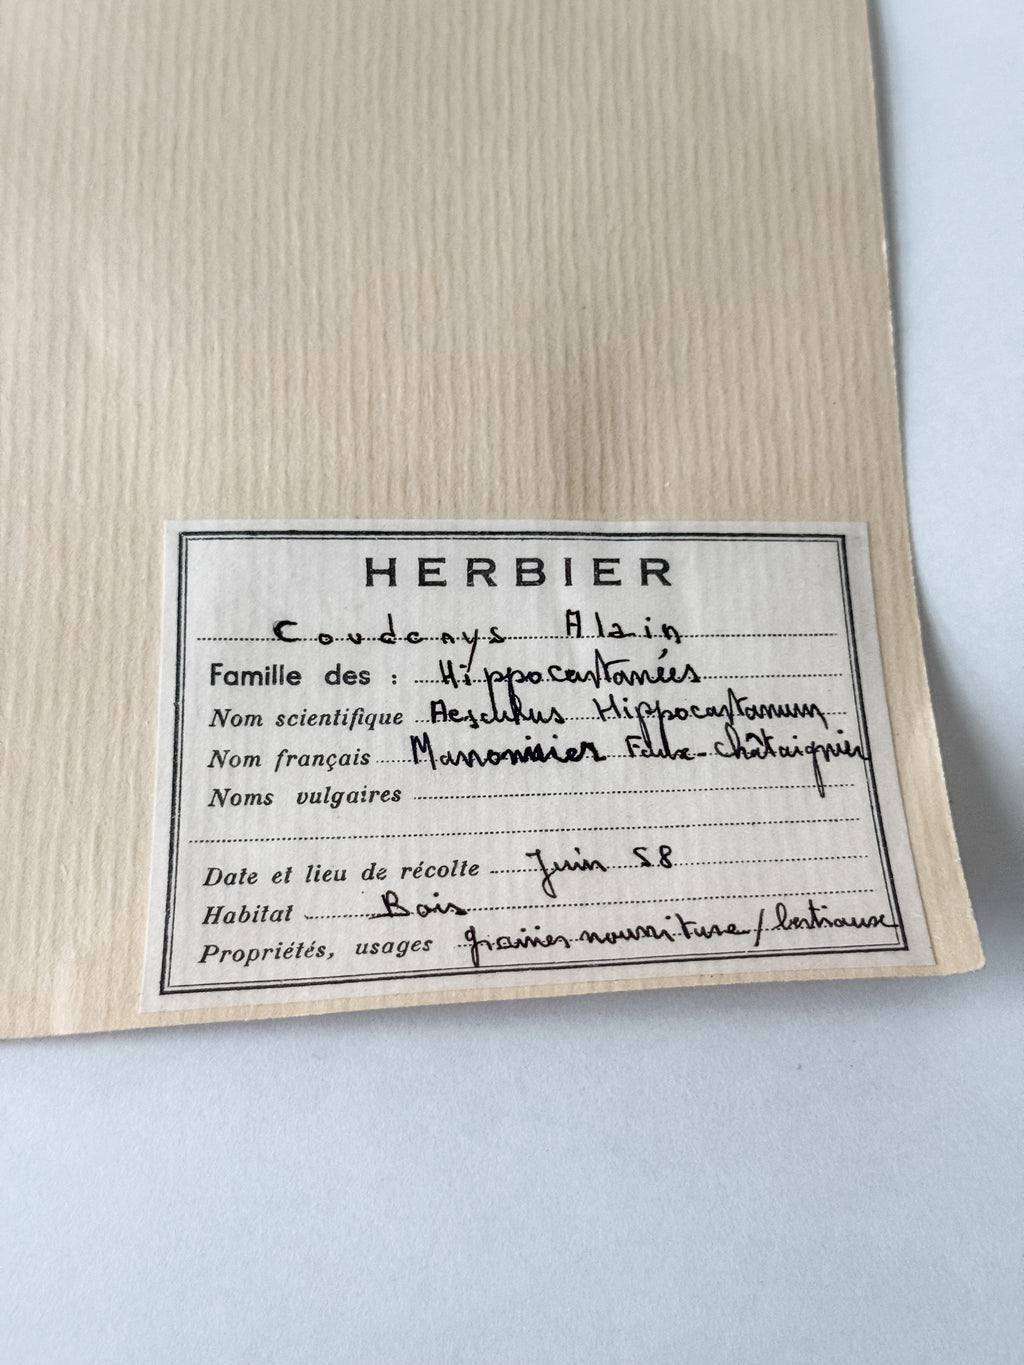 HERBIER
Coudenys Alain
Famille des : Hippocastanées
Nom scientifique Aesculus Hippocastanum
Nom français Marronnier Faux-châtaignier
Noms vulgaires
Date et lieu de récolte Juin 58
Habitat Bois
Propriétés, usages graines nourriture / bestiaux